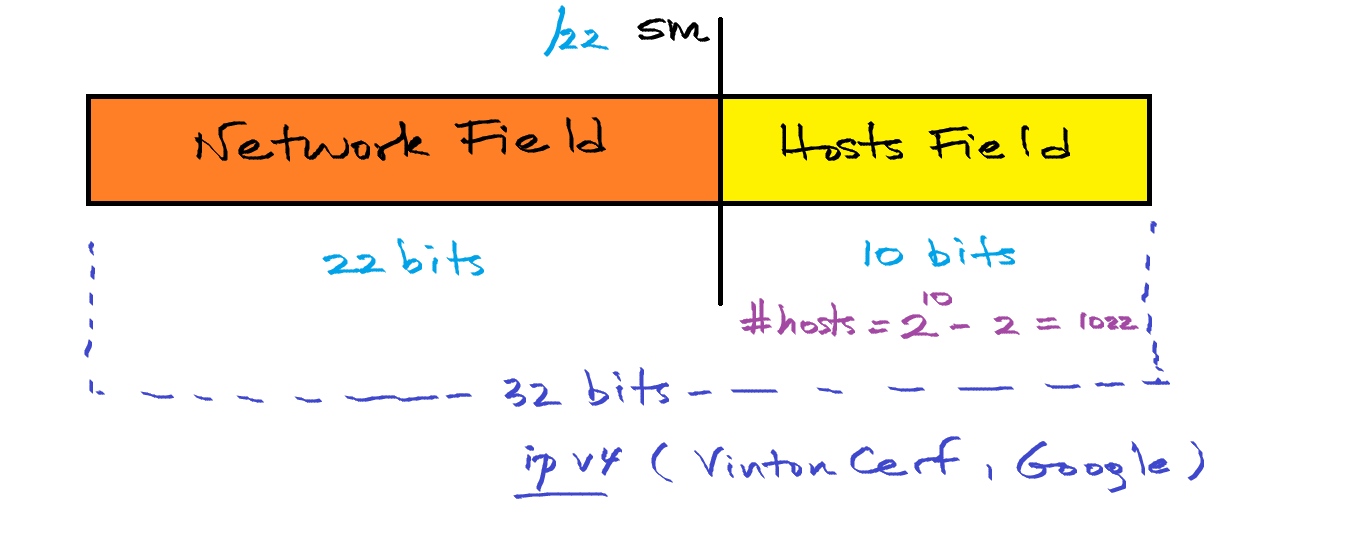 /22 SM
Network Field Hosts Field
22 bits 10 bits
#hosts = 2^10 - 2 = 1022
32 bits
ipv4 (Vinton Cerf, Google)